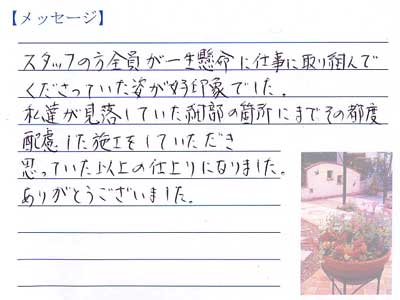 【メッセージ】
スタッフの方全員が一生懸命に仕事に取り組んで
くださっていた姿が好印象でした。
私達が見落していた細部の箇所にまでその都度
配慮した施工をしていただき
思っていた以上の仕上りになりました。
ありがとうございました。